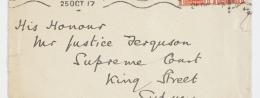 25 OCT 17
His Honour
Mr Justice Ferguson
Supreme Court
King Street
Sydney